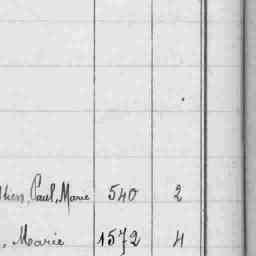 Paul, Marie 540 2
, Marie 1572 4